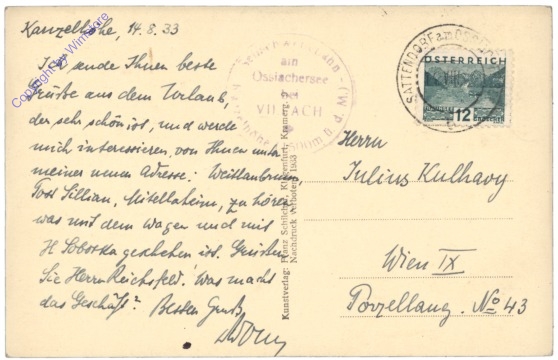 Kanzelhöhe, 14.8.33
Ich sende Ihnen beste
Grüße aus dem Urlaub,
der sehr schön ist, und werde
mich interessieren, von Ihnen unter
meiner neuen Adresse: Weitlanbrunn
Post Sillian, zu hören
was mit dem Wagen und mit
H Sobotka geschehen ist. Grüßen
Sie Herrn Reichsfeld! Was macht
das Geschäft? Besten Gruß
Copyright by Winistore
am
Ossiachersee
bei
VILLACH
Kunstverlag: Franz Schilcher, Klagenfurt, Kramerg.
Nachdruck verboten 1933
SATTENDORF am OSSI
ÖSTERREICH
12 GROSCHEN
Herrn
Julius Kulhavy
Wien IX
Porzellang. No 43